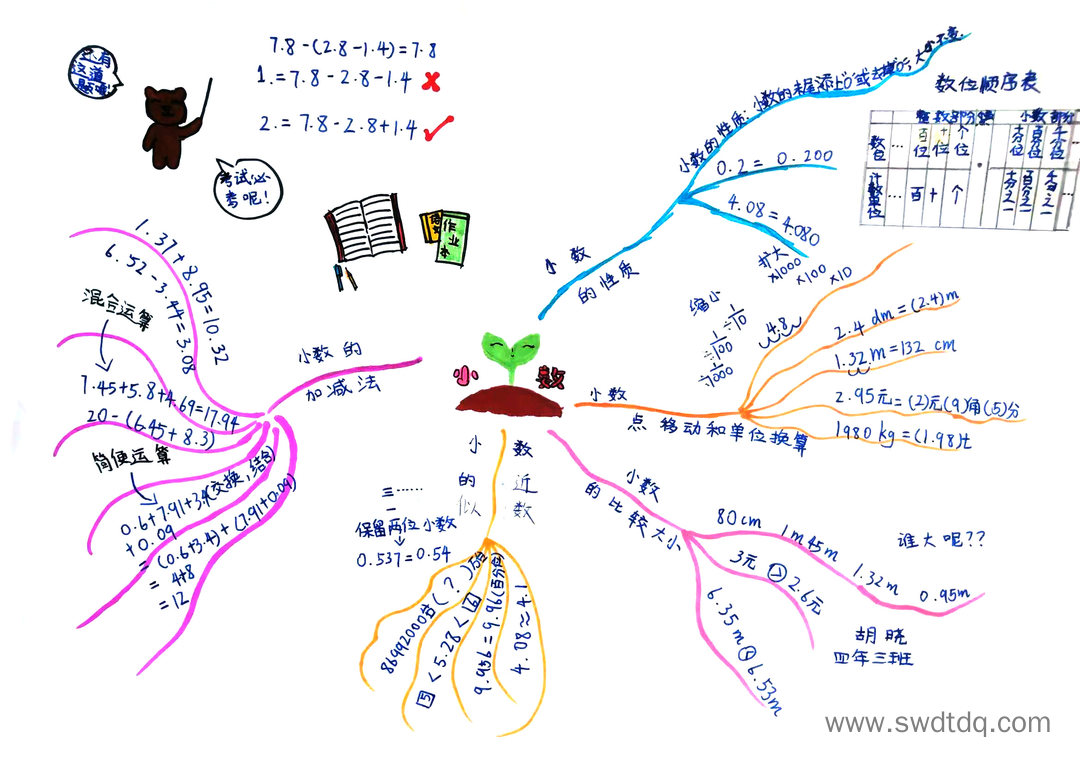 还有
这道
题哦!
7.8-(2.8-1.4)=7.8
1.=7.8-2.8-1.4 ✗
2.=7.8-2.8+1.4 ✓
考试必
考呢!
语文
作业本
小数
小数的性质
小数的性质:小数的末尾添上"0"或去掉"0",大小不变.
0.2=0.200
4.08=4.080
数位顺序表
整数部分 小数部分
数位 … 百位 十位 个位 · 十分位 百分位 千分位 …
计数单位 … 百 十 个 十分之一 百分之一 千分之一 …
小数
点移动和单位换算
扩大
×1000 ×100 ×10
缩小
÷1/1000 ÷1/100 ÷1/10
4.8
2.4dm=(2.4)m
1.32m=132cm
2.95元=(2)元(9)角(5)分
1980kg=(1.98)t
小数
的比较大小
80cm 1m45m 1.32m 0.95m
谁大呢??
3元>2.6元
6.35m<6.53m
胡晓
四年三班
小数
的近
似数
三……
一
保留两位小数
0.537=0.54
86992000台(?)万台
5<5.28<6
9.956=9.96(百分位)
4.08≈4.1
小数的
加减法
1.37+8.95=10.32
6.52-3.44=3.08
混合运算
7.45+5.8+4.69=17.94
20-(6.45+8.3)
简便运算
0.6+7.91+3.4(交换,结合)
+0.09
=(0.6+3.4)+(7.91+0.09)
=4+8
=12
www.swdtdq.com